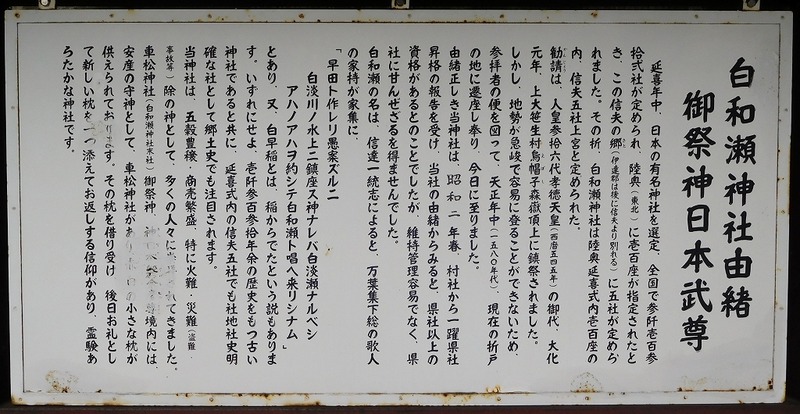 白和瀬神社由緒
御祭神日本武尊
延喜年中、日本の有名神社を選定、全国で参阡壱百参
拾弐社が定められ、陸奥（東北）に壱百座が指定されたと
き、この信夫の郷（伊達郡は後に信夫より別れる）に五社が定めら
れました。その折、白和瀬神社は陸奥延喜式内壱百座の
内、信夫五社上宮と定められた。
勧請は、人皇参拾六代孝徳天皇（西暦五四五年）の御代、大化
元年、上大笹生村烏帽子森嶽頂上に鎮祭されました。
しかし、地勢が急峻で容易に登ることができないため、
参拝者の便を図って、天正年中（一五八〇年代）、現在の折戸
の地に遷座し奉り、今日に至りました。
由緒正しき当神社は、昭和二年春、村社から一躍県社
昇格の報告を受け、当社の由緒からみると、県社以上の
資格があるとのことでしたが、維持管理容易でなく、県
社に甘んぜざるを得ませんでした。
白和瀬の名は、信達一統志によると、万葉集下総の歌人
の家持が家集に、
「早田ト作レリ愚案ズルニ
白淡川ノ水上ニ鎮座ス神ナレバ白淡瀬ナルベシ
アハノアハヲ約シテ白和瀬ト唱へ来リシナム」
とあり、又、白早稲とは、稲からでたという説もありま
す。いずれにせよ、壱阡参百参拾年余の歴史をもつ古い
神社であると共に、延喜式内の信夫五社でも社地社史明
確な社として郷土史でも注目されます。
当神社は、五穀豊穣、商売繁盛、特に火難・災難（盗難
事故等）除の神として、多くの人々に れてきました。
車松神社（白和瀬神社末社）御祭神 境内には、
安産の守神として、車松神社があり の小さな枕が
供えられております。その枕を借り受け、後日お礼とし
て新しい枕を つ添えてお返しする信仰があり、霊験あ
らたかな神社です。